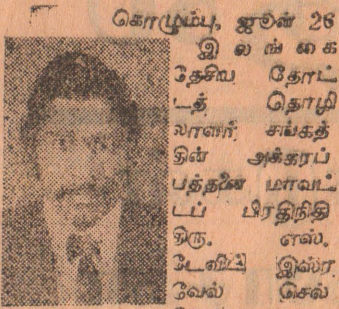 கொழும்பு, ஜூன் 26
இ ல ங் கை
தேசிய தோட்
டத் தொழி
லாளர் சங்கத்
தின் அக்கரப்
பத்தனை மாவட்
டப் பிரதிநிதி
திரு. எஸ்.
டேவிட் இஸ்ர
வேல் செல்